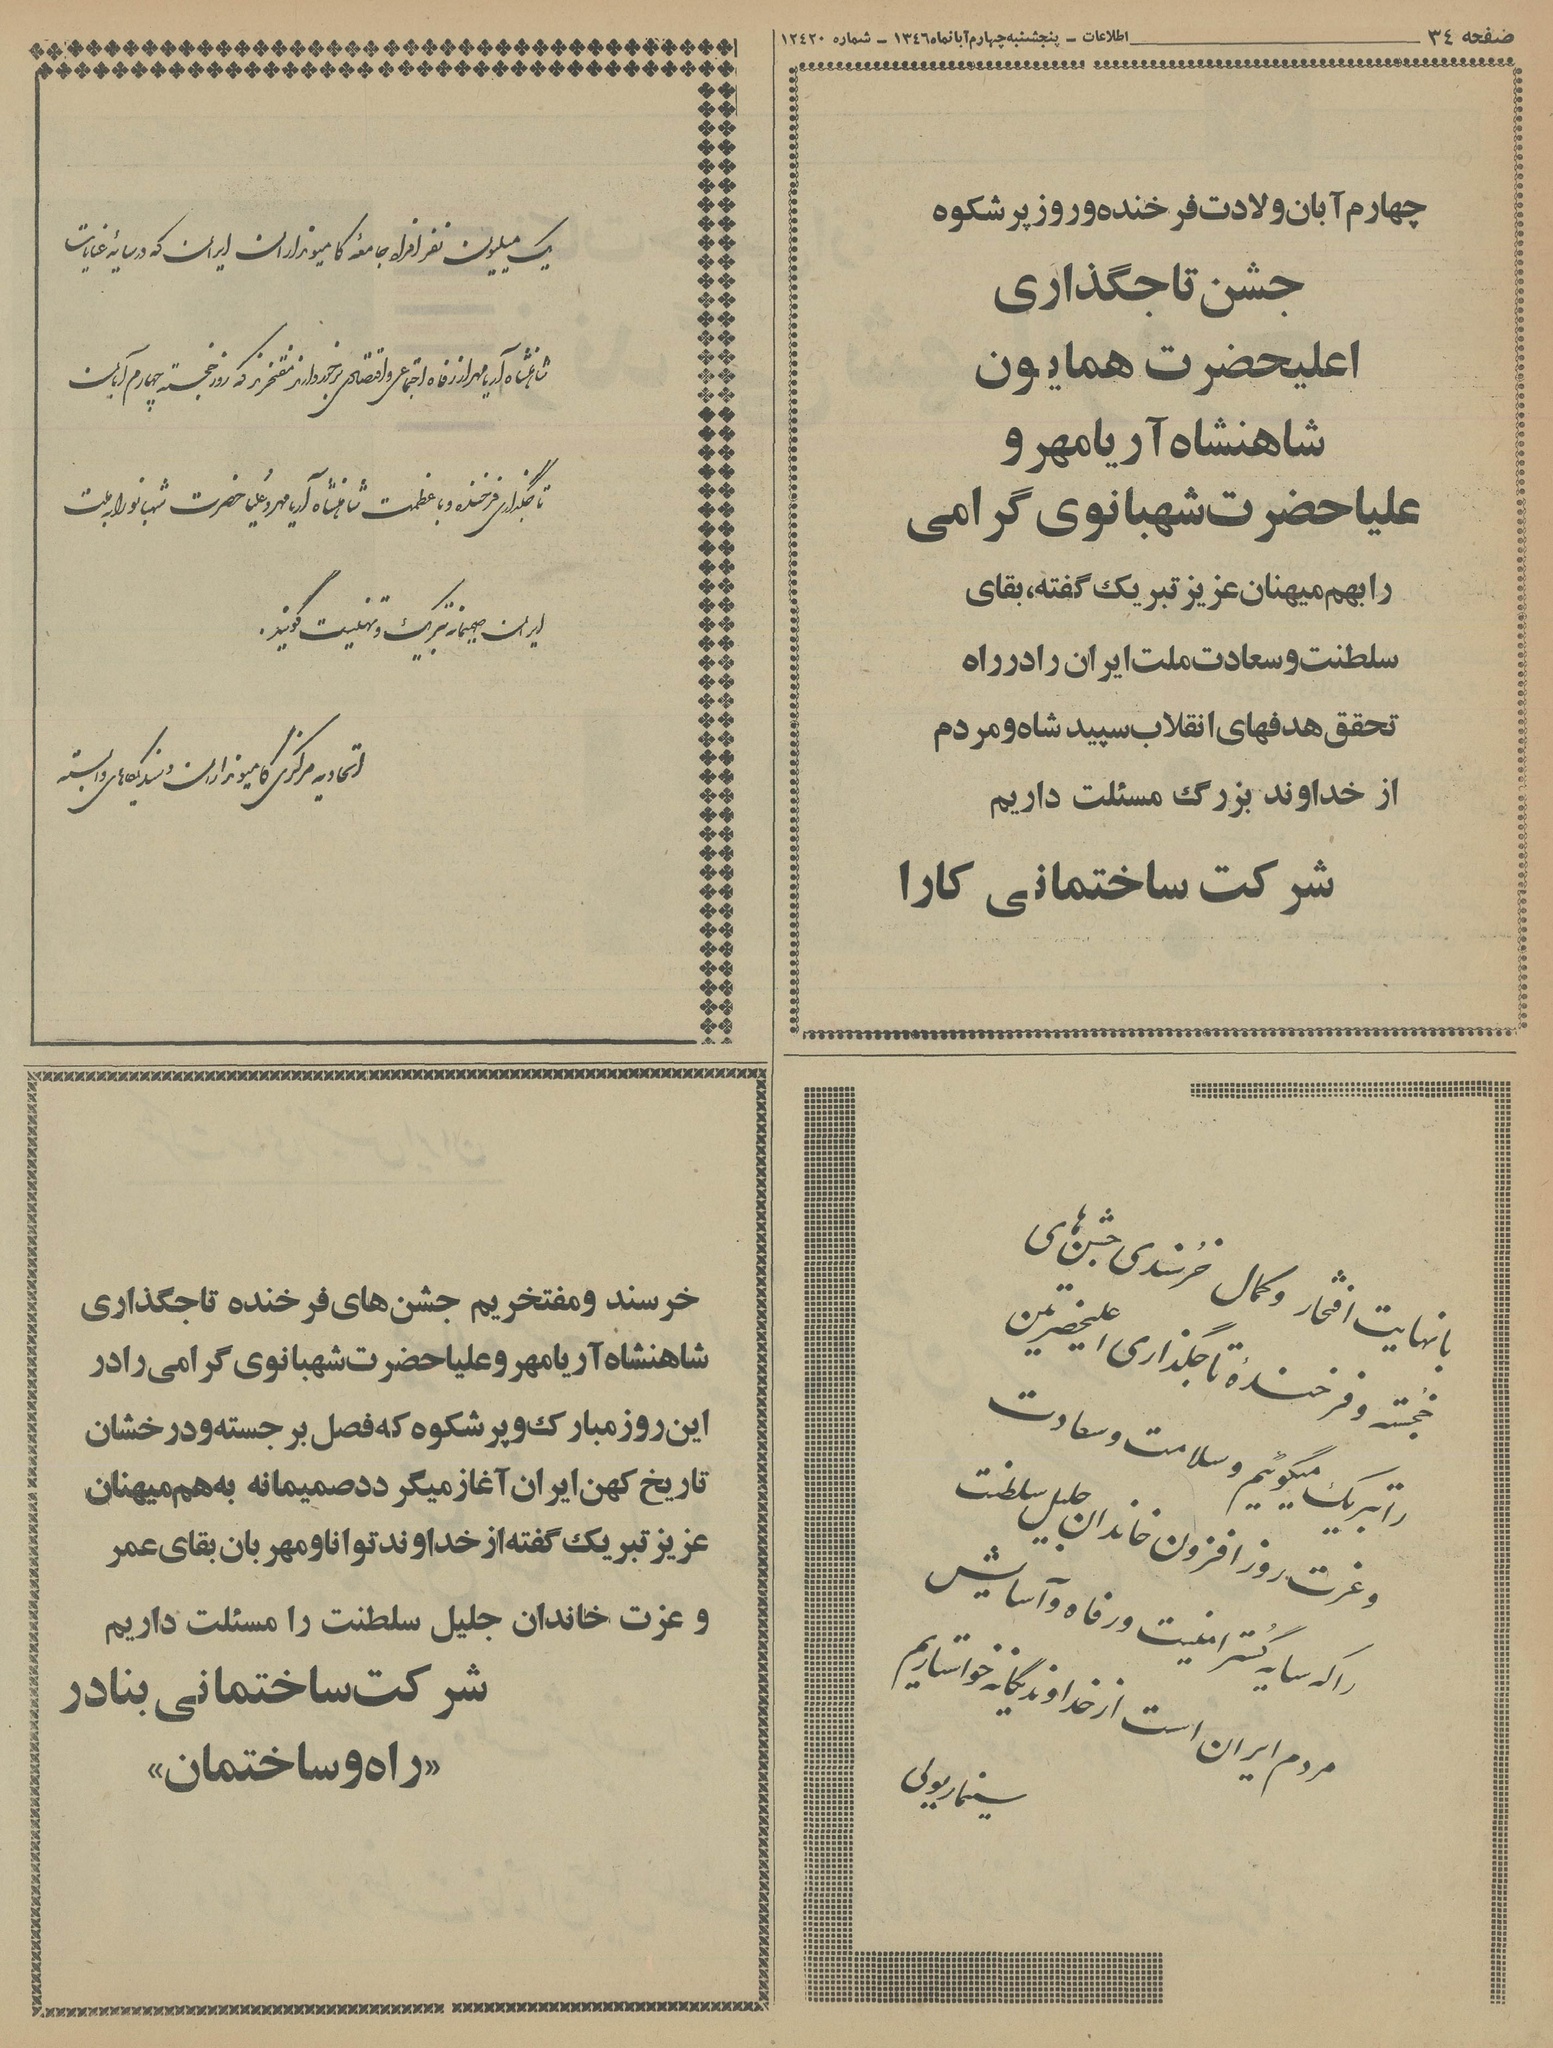 صفحه ۳۴
اطلاعات - پنجشنبه چهارم آبانماه ۱۳۴۶ - شماره ۱۲۴۲۰
چهارم آبان ولادت فرخنده و روز پرشکوه
جشن تاجگذاری
اعلیحضرت همایون
شاهنشاه آریامهر و
علیاحضرت شهبانوی گرامی
را بهم میهنان عزیز تبریک گفته، بقای
سلطنت و سعادت ملت ایران را در راه
تحقق هدفهای انقلاب سپید شاه و مردم
از خداوند بزرگ مسئلت داریم
شرکت ساختمانی کارا
یک میلیون نفر افراد جامعهٔ کامیونداران ایران که در سایهٔ عنایات
شاهنشاه آریامهر از رفاه اجتماعی و اقتصادی برخوردارند مفتخرند که روز خجسته چهارم آبان
تاجگذاری فرخنده و با عظمت شاهنشاه آریامهر و علیاحضرت شهبانو را به ملت
ایران صمیمانه تبریک و تهنیت گویند.
اتحادیه مرکزی کامیونداران و سندیکاهای وابسته
با نهایت افتخار و کمال خرسندی جشن‌های
خجسته و فرخندهٔ تاجگذاری اعلیحضرتین
را تبریک میگوئیم و سلامت و سعادت
و عزت روز افزون خاندان جلیل سلطنت
را که سایه گستر امنیت و رفاه و آسایش
مردم ایران است از خداوند یگانه خواستاریم
سینما ریولی
خرسند و مفتخریم جشن های فرخنده تاجگذاری
شاهنشاه آریامهر و علیاحضرت شهبانوی گرامی را در
این روز مبارک و پرشکوه که فصل برجسته و درخشان
تاریخ کهن ایران آغاز میگردد صمیمانه به هم میهنان
عزیز تبریک گفته از خداوند توانا و مهربان بقای عمر
و عزت خاندان جلیل سلطنت را مسئلت داریم
شرکت ساختمانی بنادر
«راه و ساختمان»